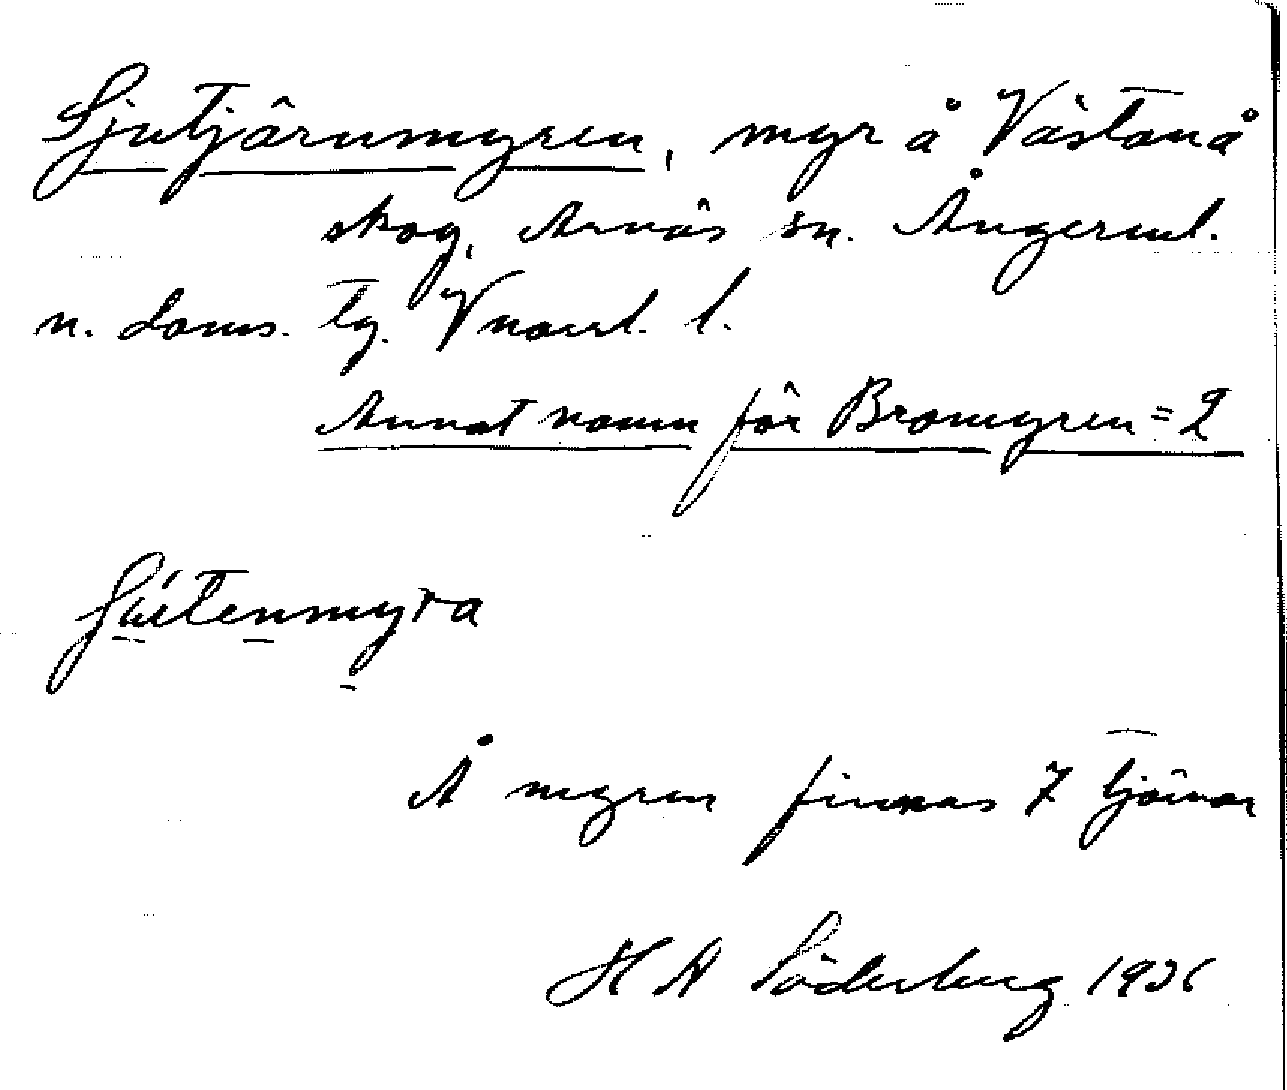 Sjutjärnmyren, myr å Västanå
skog, Arnäs sn. Ångerml.
n. doms. tg. Vnorrl. l.
Annat namn för Bromyren = 2
Å myren finnas 7 tjärnar
H A Söderberg 1936